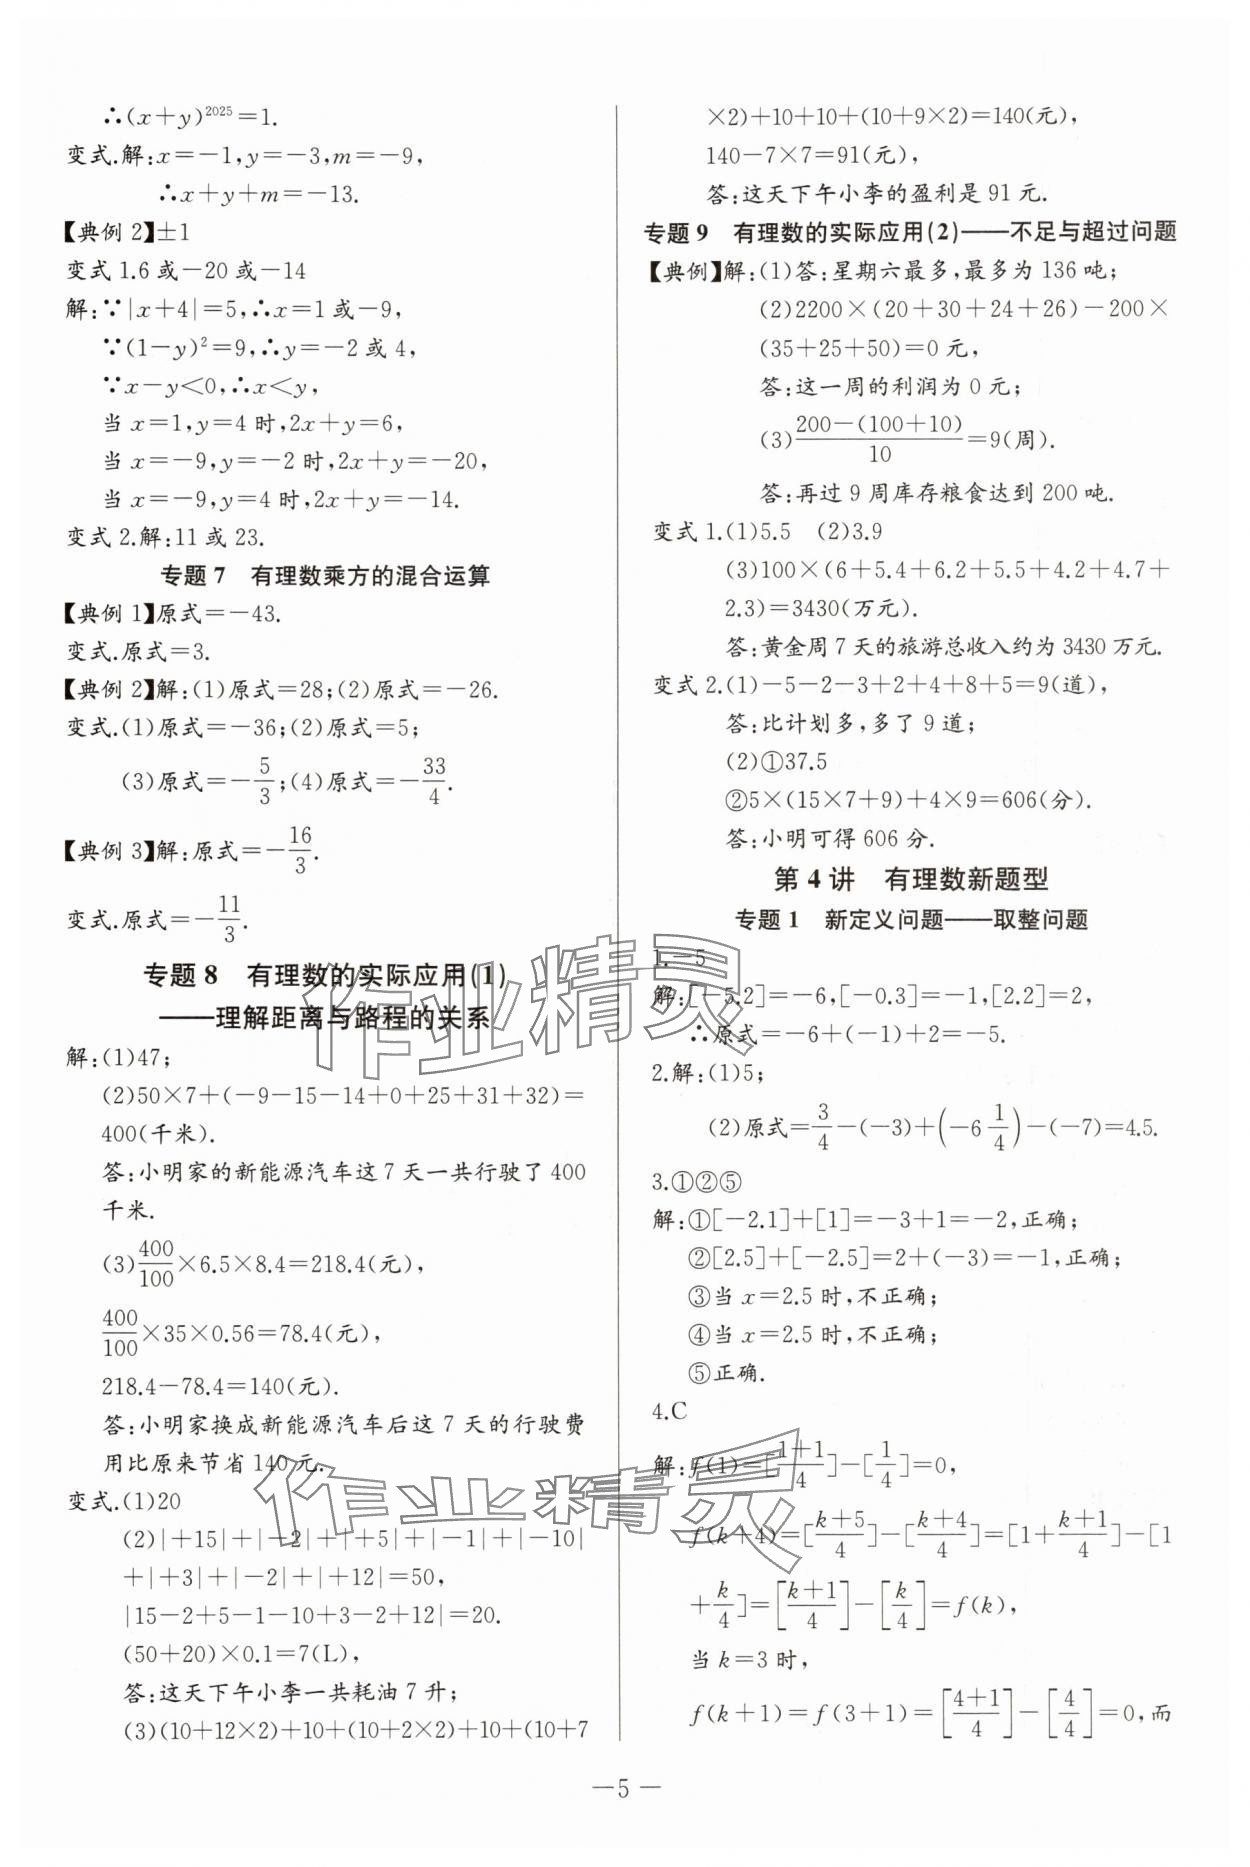 ∴(x+y)²⁰²⁵=1.
变式.解:x=-1,y=-3,m=-9,
∴x+y+m=-13.
【典例2】±1
变式1.6或-20或-14
解:∵|x+4|=5,∴x=1或-9,
∵(1-y)²=9,∴y=-2或4,
∵x-y<0,∴x<y,
当x=1,y=4时,2x+y=6,
当x=-9,y=-2时,2x+y=-20,
当x=-9,y=4时,2x+y=-14.
变式2.解:11或23.
专题7 有理数乘方的混合运算
【典例1】原式=-43.
变式.原式=3.
【典例2】解:(1)原式=28;(2)原式=-26.
变式.(1)原式=-36;(2)原式=5;
(3)原式=-5/3;(4)原式=-33/4.
【典例3】解:原式=-16/3.
变式.原式=-11/3.
专题8 有理数的实际应用(1)
——理解距离与路程的关系
解:(1)47;
(2)50×7+(-9-15-14+0+25+31+32)=
400(千米).
答:小明家的新能源汽车这7天一共行驶了400
千米.
(3)400/100×6.5×8.4=218.4(元),
400/100×35×0.56=78.4(元),
218.4-78.4=140(元).
答:小明家换成新能源汽车后这7天的行驶费
用比原来节省140元.
变式.(1)20
(2)|+15|+|-2|+|+5|+|-1|+|-10|
+|+3|+|-2|+|+12|=50,
|15-2+5-1-10+3-2+12|=20.
(50+20)×0.1=7(L),
答:这天下午小李一共耗油7升;
(3)(10+12×2)+10+(10+2×2)+10+(10+7
×2)+10+10+(10+9×2)=140(元),
140-7×7=91(元),
答:这天下午小李的盈利是91元.
专题9 有理数的实际应用(2)——不足与超过问题
【典例】解:(1)答:星期六最多,最多为136吨;
(2)2200×(20+30+24+26)-200×
(35+25+50)=0元,
答:这一周的利润为0元;
(3)200-(100+10)/10=9(周).
答:再过9周库存粮食达到200吨.
变式1.(1)5.5 (2)3.9
(3)100×(6+5.4+6.2+5.5+4.2+4.7+
2.3)=3430(万元).
答:黄金周7天的旅游总收入约为3430万元.
变式2.(1)-5-2-3+2+4+8+5=9(道),
答:比计划多,多了9道;
(2)①37.5
②5×(15×7+9)+4×9=606(分).
答:小明可得606分.
第4讲 有理数新题型
专题1 新定义问题——取整问题
1.-5
解:[-5.2]=-6,[-0.3]=-1,[2.2]=2,
∴原式=-6+(-1)+2=-5.
2.解:(1)5;
(2)原式=3/4-(-3)+(-6 1/4)-(-7)=4.5.
3.①②⑤
解:①[-2.1]+[1]=-3+1=-2,正确;
②[2.5]+[-2.5]=2+(-3)=-1,正确;
③当x=2.5时,不正确;
④当x=2.5时,不正确;
⑤正确.
4.C
解:f(1)=[1+1/4]-[1/4]=0,
f(k+4)=[k+5/4]-[k+4/4]=[1+k+1/4]-[1
+k/4]=[k+1/4]-[k/4]=f(k),
当k=3时,
f(k+1)=f(3+1)=[4+1/4]-[4/4]=0,而
—5—
作业精灵
作业精灵